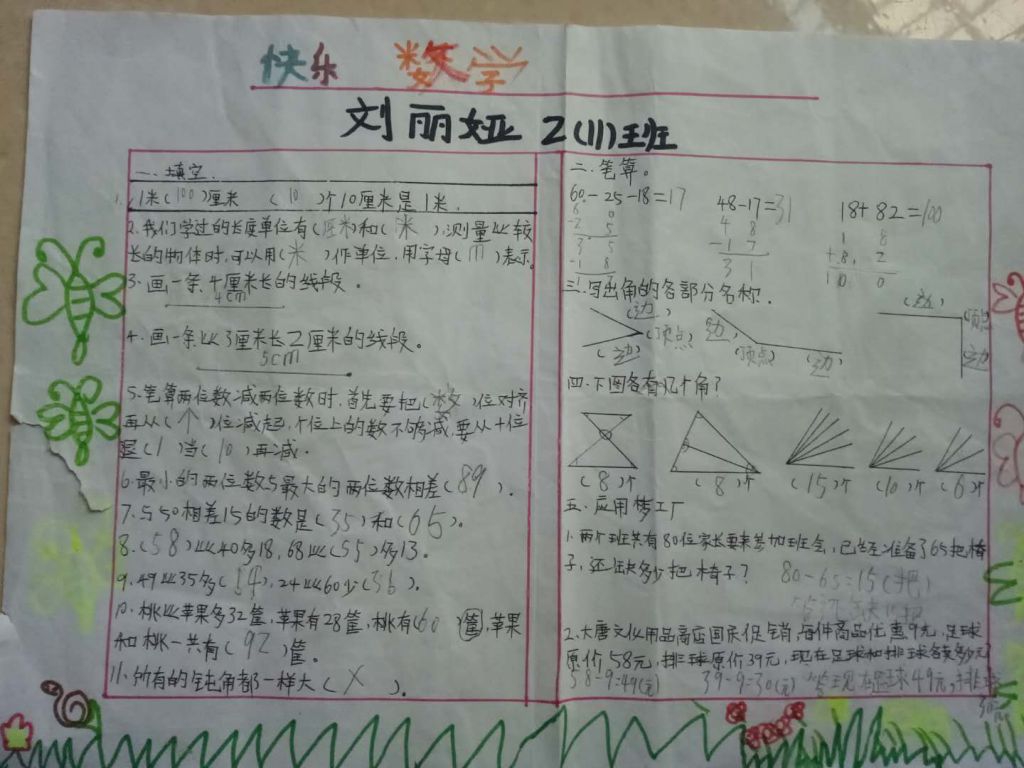 快乐 数学
刘丽娅 2(11)班
一、填空.
1. 1米(100)厘米 (10)个10厘米是1米.
2.我们学过的长度单位有(厘米)和(米),测量比较
长的物体时,可以用(米)作单位,用字母(m)表示.
3.画一条4厘米长的线段。
4cm
4.画一条比3厘米长2厘米的线段。
5cm
5.笔算两位数减两位数时,首先要把(数)位对齐
再从(个)位减起,个位上的数不够减,要从十位
退(1)当(10)再减.
6.最小的两位数与最大的两位数相差(89).
7.与50相差15的数是(35)和(65)。
8.(58)比40多18,68比(55)多13.
9.49比35多(14),24比60少(36).
10.桃比苹果多32筐,苹果有28筐,桃有(60)筐,苹果
和桃一共有(92)筐。
11.所有的钝角都一样大(X).
二.笔算。
60-25-18=17 48-17=31 18+82=100
6 0 4 8 1 8
-2 5 -1 7 +8 2
3 5 3 1 10 0
-1 8
1
三.写出角的各部分名称.
(边) (顶点) (边)
(边) (顶点) (边)
(边) (顶点) (边)
四.下图各有几个角?
(8)个 (8)个 (15)个 (10)个 (6)个
五.应用梦工厂
1.两个班共有80位家长要来参加班会,已经准备了65把椅
子,还缺多少把椅子? 80-65=15(把)
2.大唐文化用品商店国庆促销,每件商品优惠9元,足球
原价58元,排球原价39元,现在足球和排球各卖多少元
58-9=49(元) 39-9=30(元) 答:现在足球49元,排球
30元